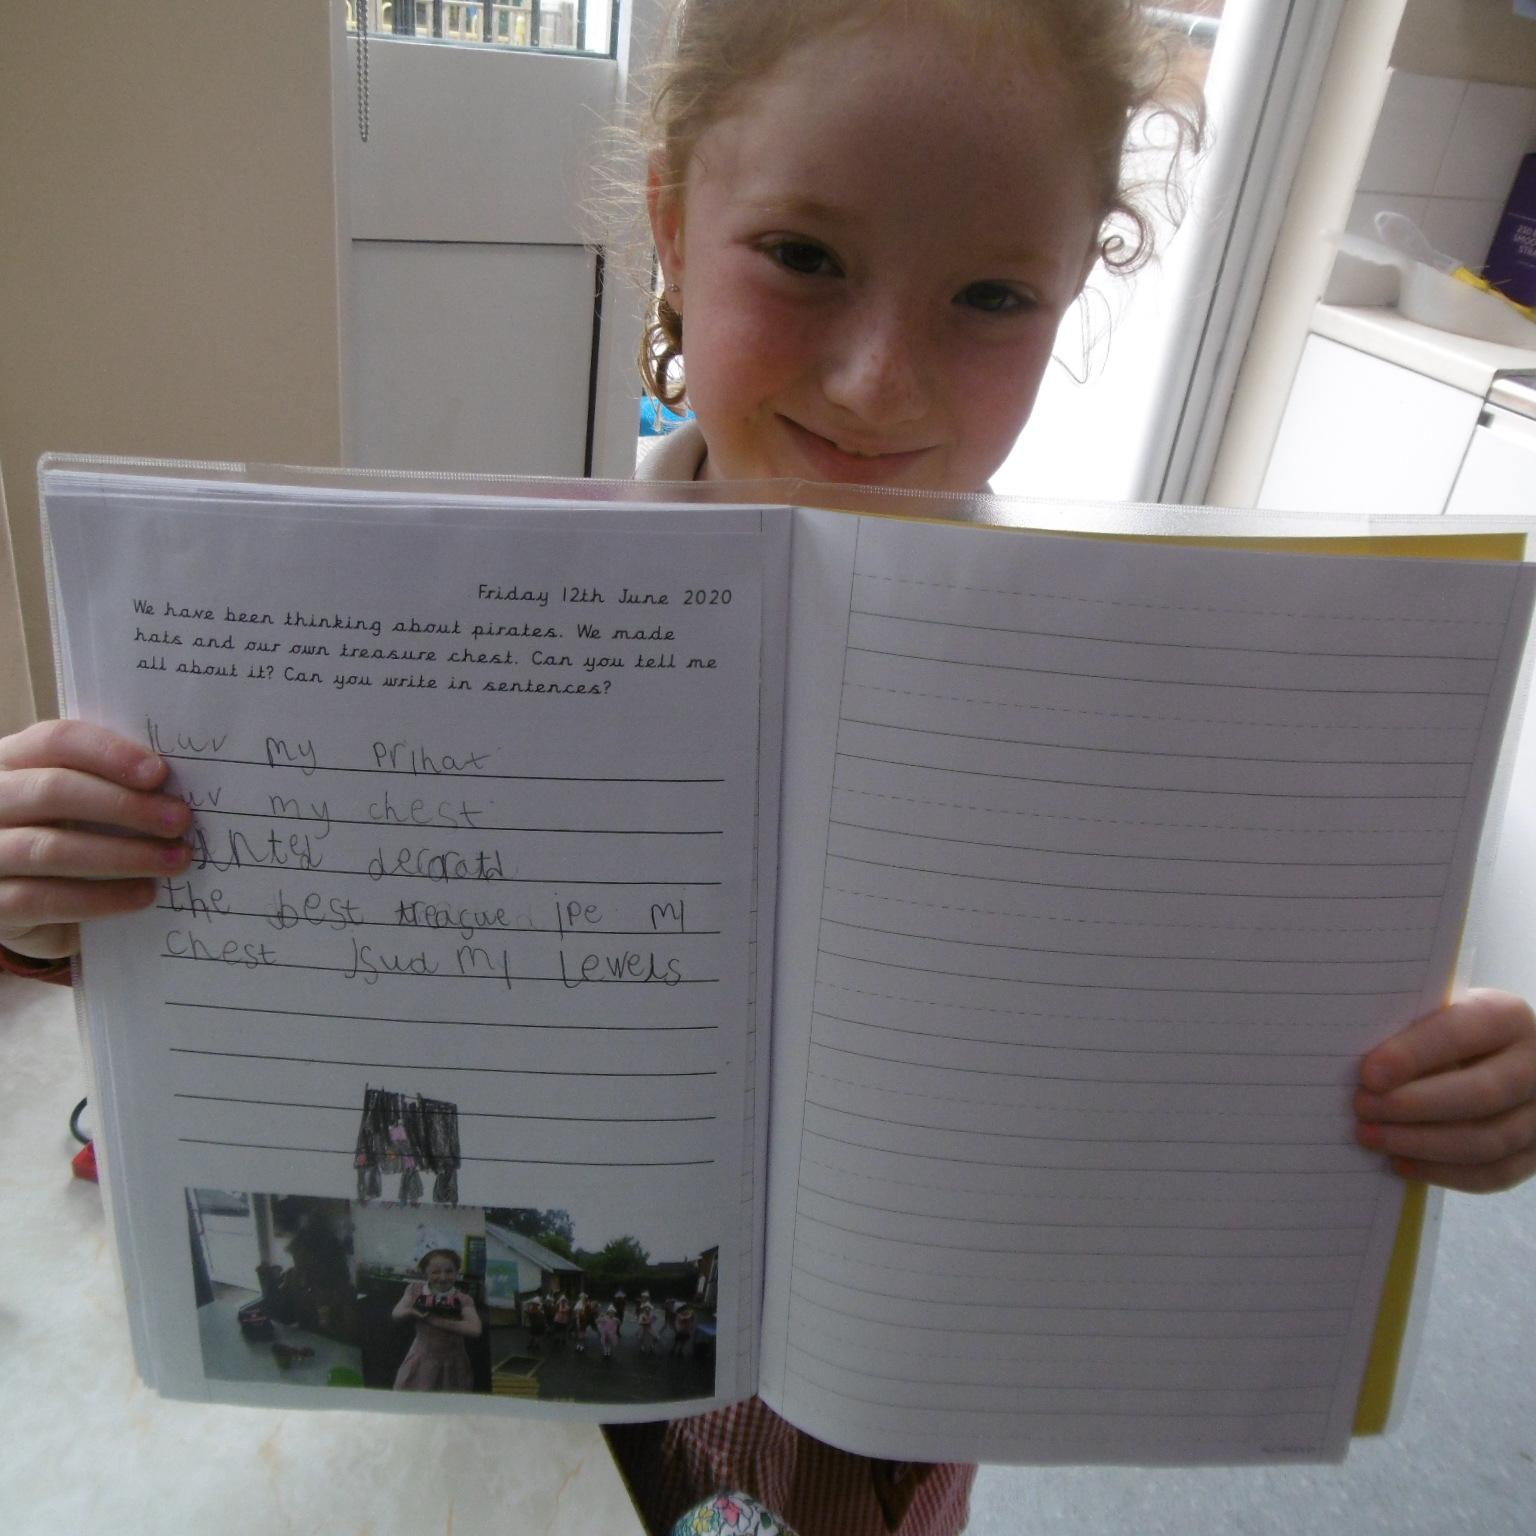 Friday 12th June 2020
We have been thinking about pirates. We made
hats and our own treasure chest. Can you tell me
all about it? Can you write in sentences?
luv my prihat
uv my chest
nted decoratd
the best treague ipe mi
chest Isud my Lewels